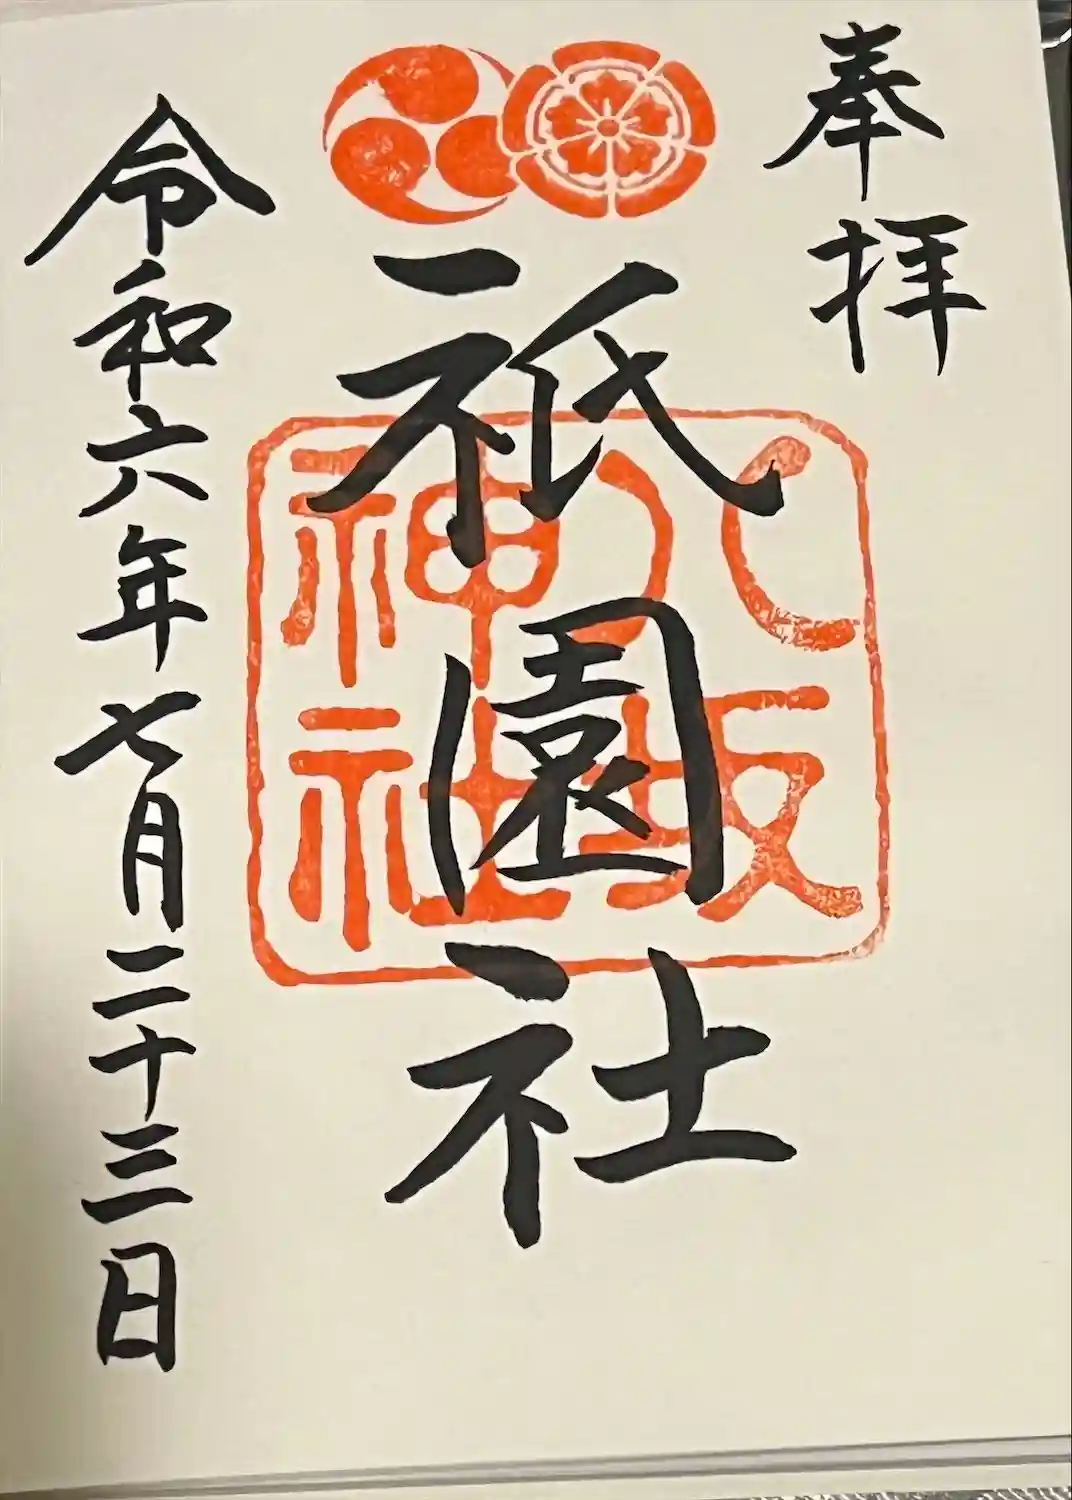 奉拝
祇園社
八坂神社
令和六年七月二十三日